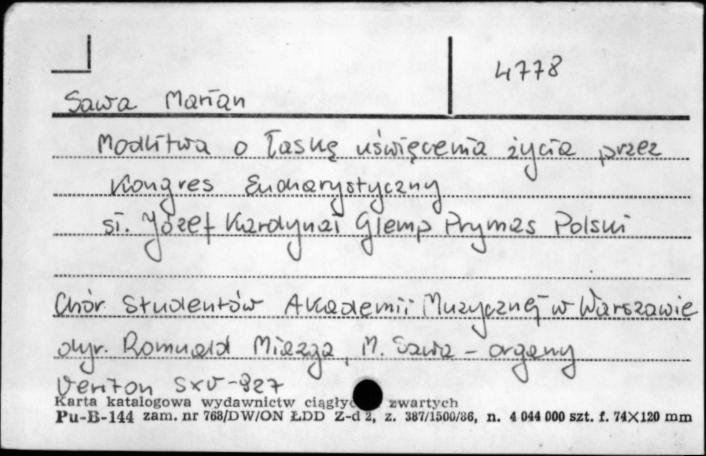 4778
Sawa Marian
Modlitwa o łaskę uświęcenia życia przez
Kongres Eucharystyczny
sł. Józef Kardynał Glemp Prymas Polski
Chór Studentów Akademii Muzycznej w Warszawie
dyr. Romuald Miazga, M. Sawa - organy
Veriton SXV-927
Karta katalogowa wydawnictw zwartych
Pu-B-144 zam. nr 768/DW/ON ŁDD Z-d 2, z. 387/1500/86, n. 4 044 000 szt. f. 74X120 mm